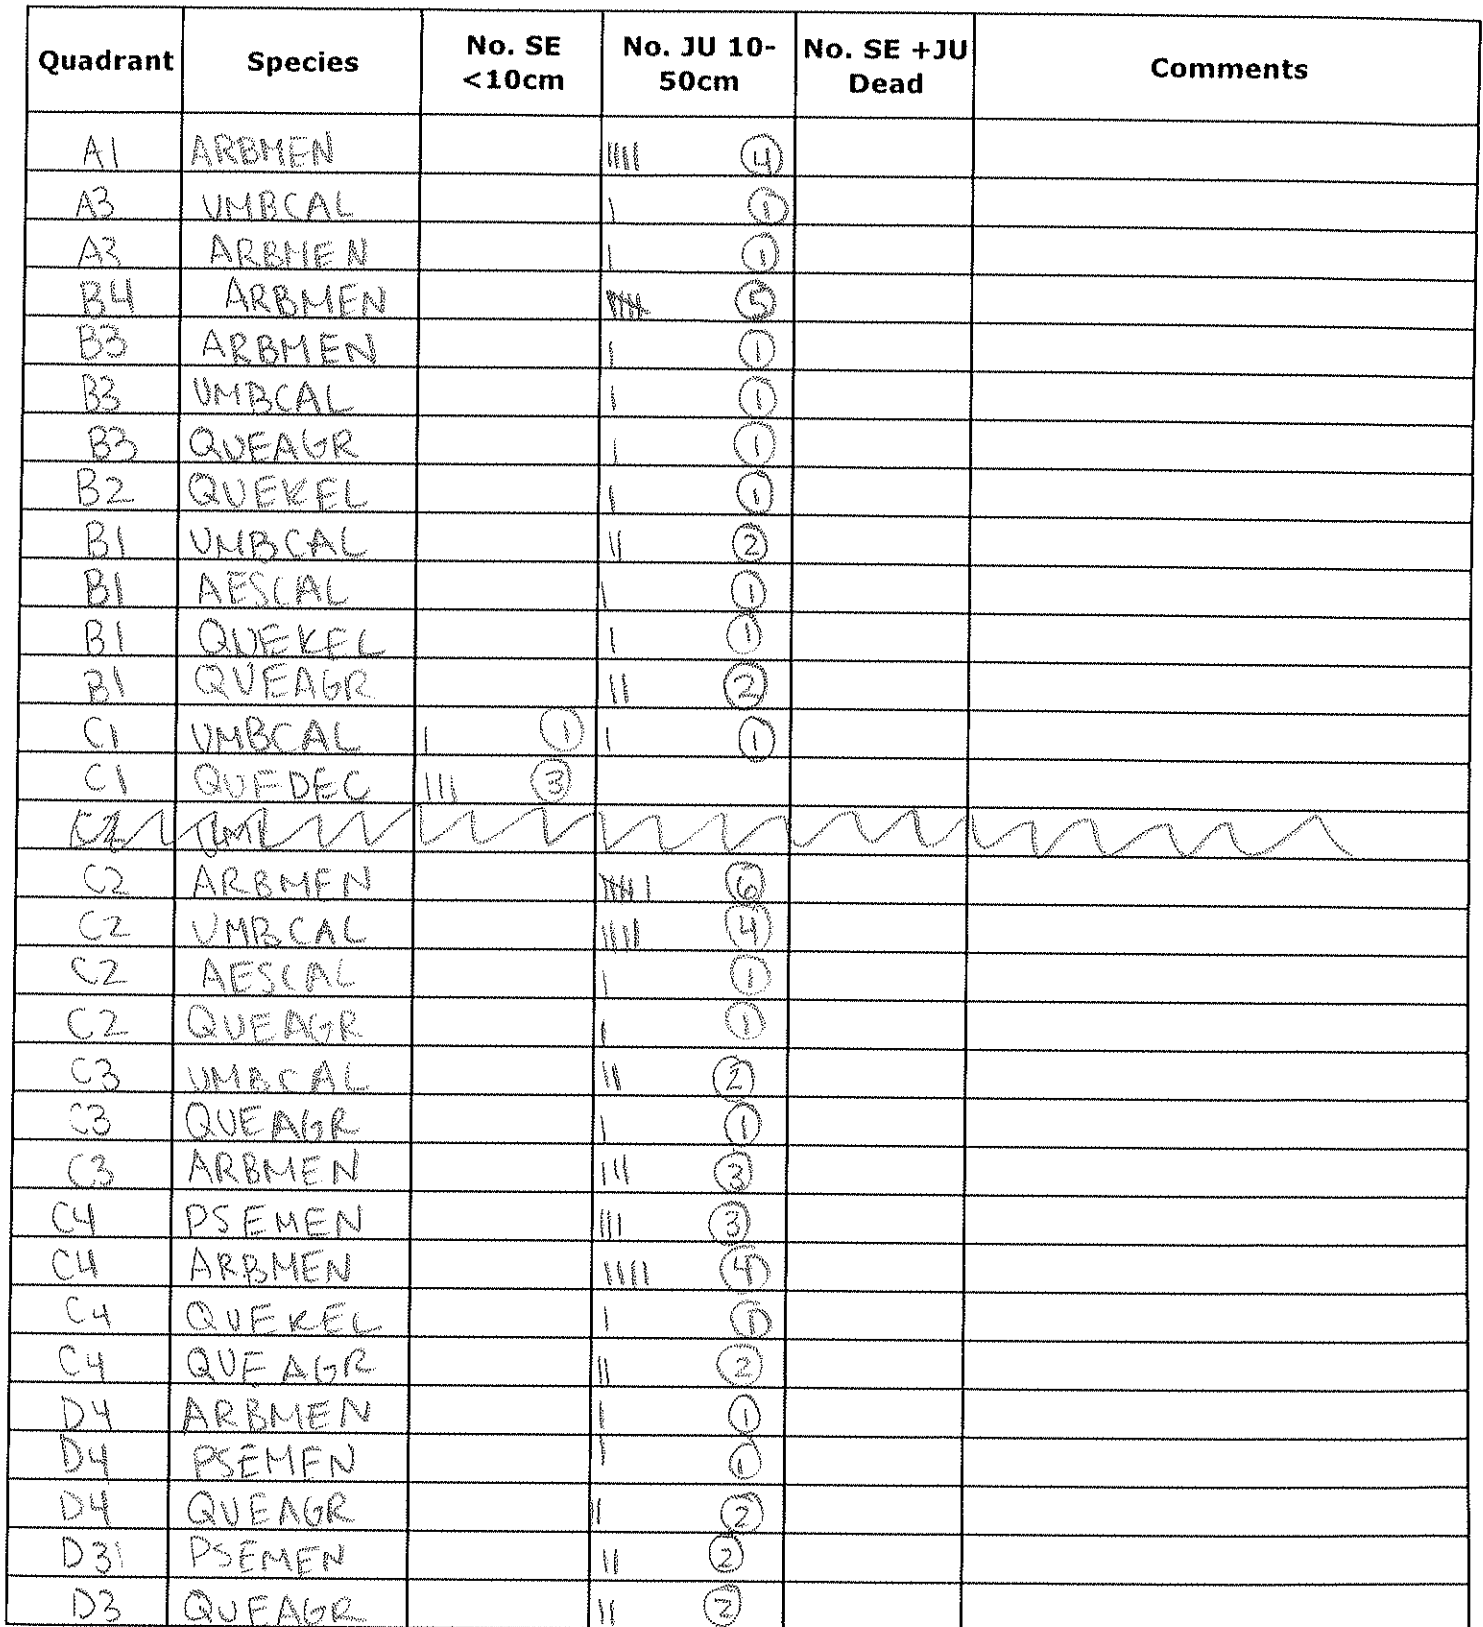 Quadrant Species No. SE <10cm No. JU 10-50cm No. SE +JU Dead Comments
A1 ARBMEN |||| 4
A3 UMBCAL | 1
A3 ARBMEN | 1
B4 ARBMEN |||| 5
B3 ARBMEN | 1
B3 UMBCAL | 1
B3 QUEAGR | 1
B2 QUEKEL | 1
B1 UMBCAL || 2
B1 AESCAL | 1
B1 QUEKEL | 1
B1 QUEAGR || 2
C1 UMBCAL | 1 | 1
C1 QUEDEC ||| 3
C2
C2 ARBMEN |||| | 6
C2 UMBCAL |||| 4
C2 AESCAL | 1
C2 QUEAGR | 1
C3 UMBCAL || 2
C3 QUEAGR | 1
C3 ARBMEN ||| 3
C4 PSEMEN ||| 3
C4 ARBMEN |||| 4
C4 QUEKEL | 1
C4 QUEAGR || 2
D4 ARBMEN | 1
D4 PSEMEN | 1
D4 QUEAGR || 2
D3 PSEMEN || 2
D3 QUEAGR || 2